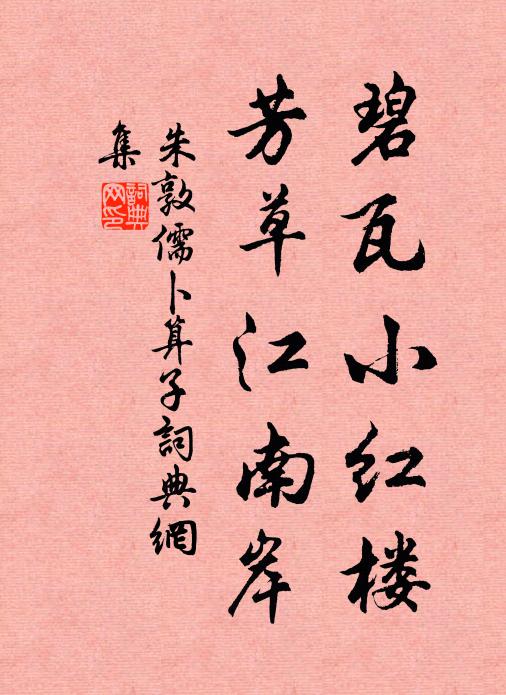 碧瓦小红楼
芳草江南岸
朱敦儒卜算子詞典網
集
詞典網印